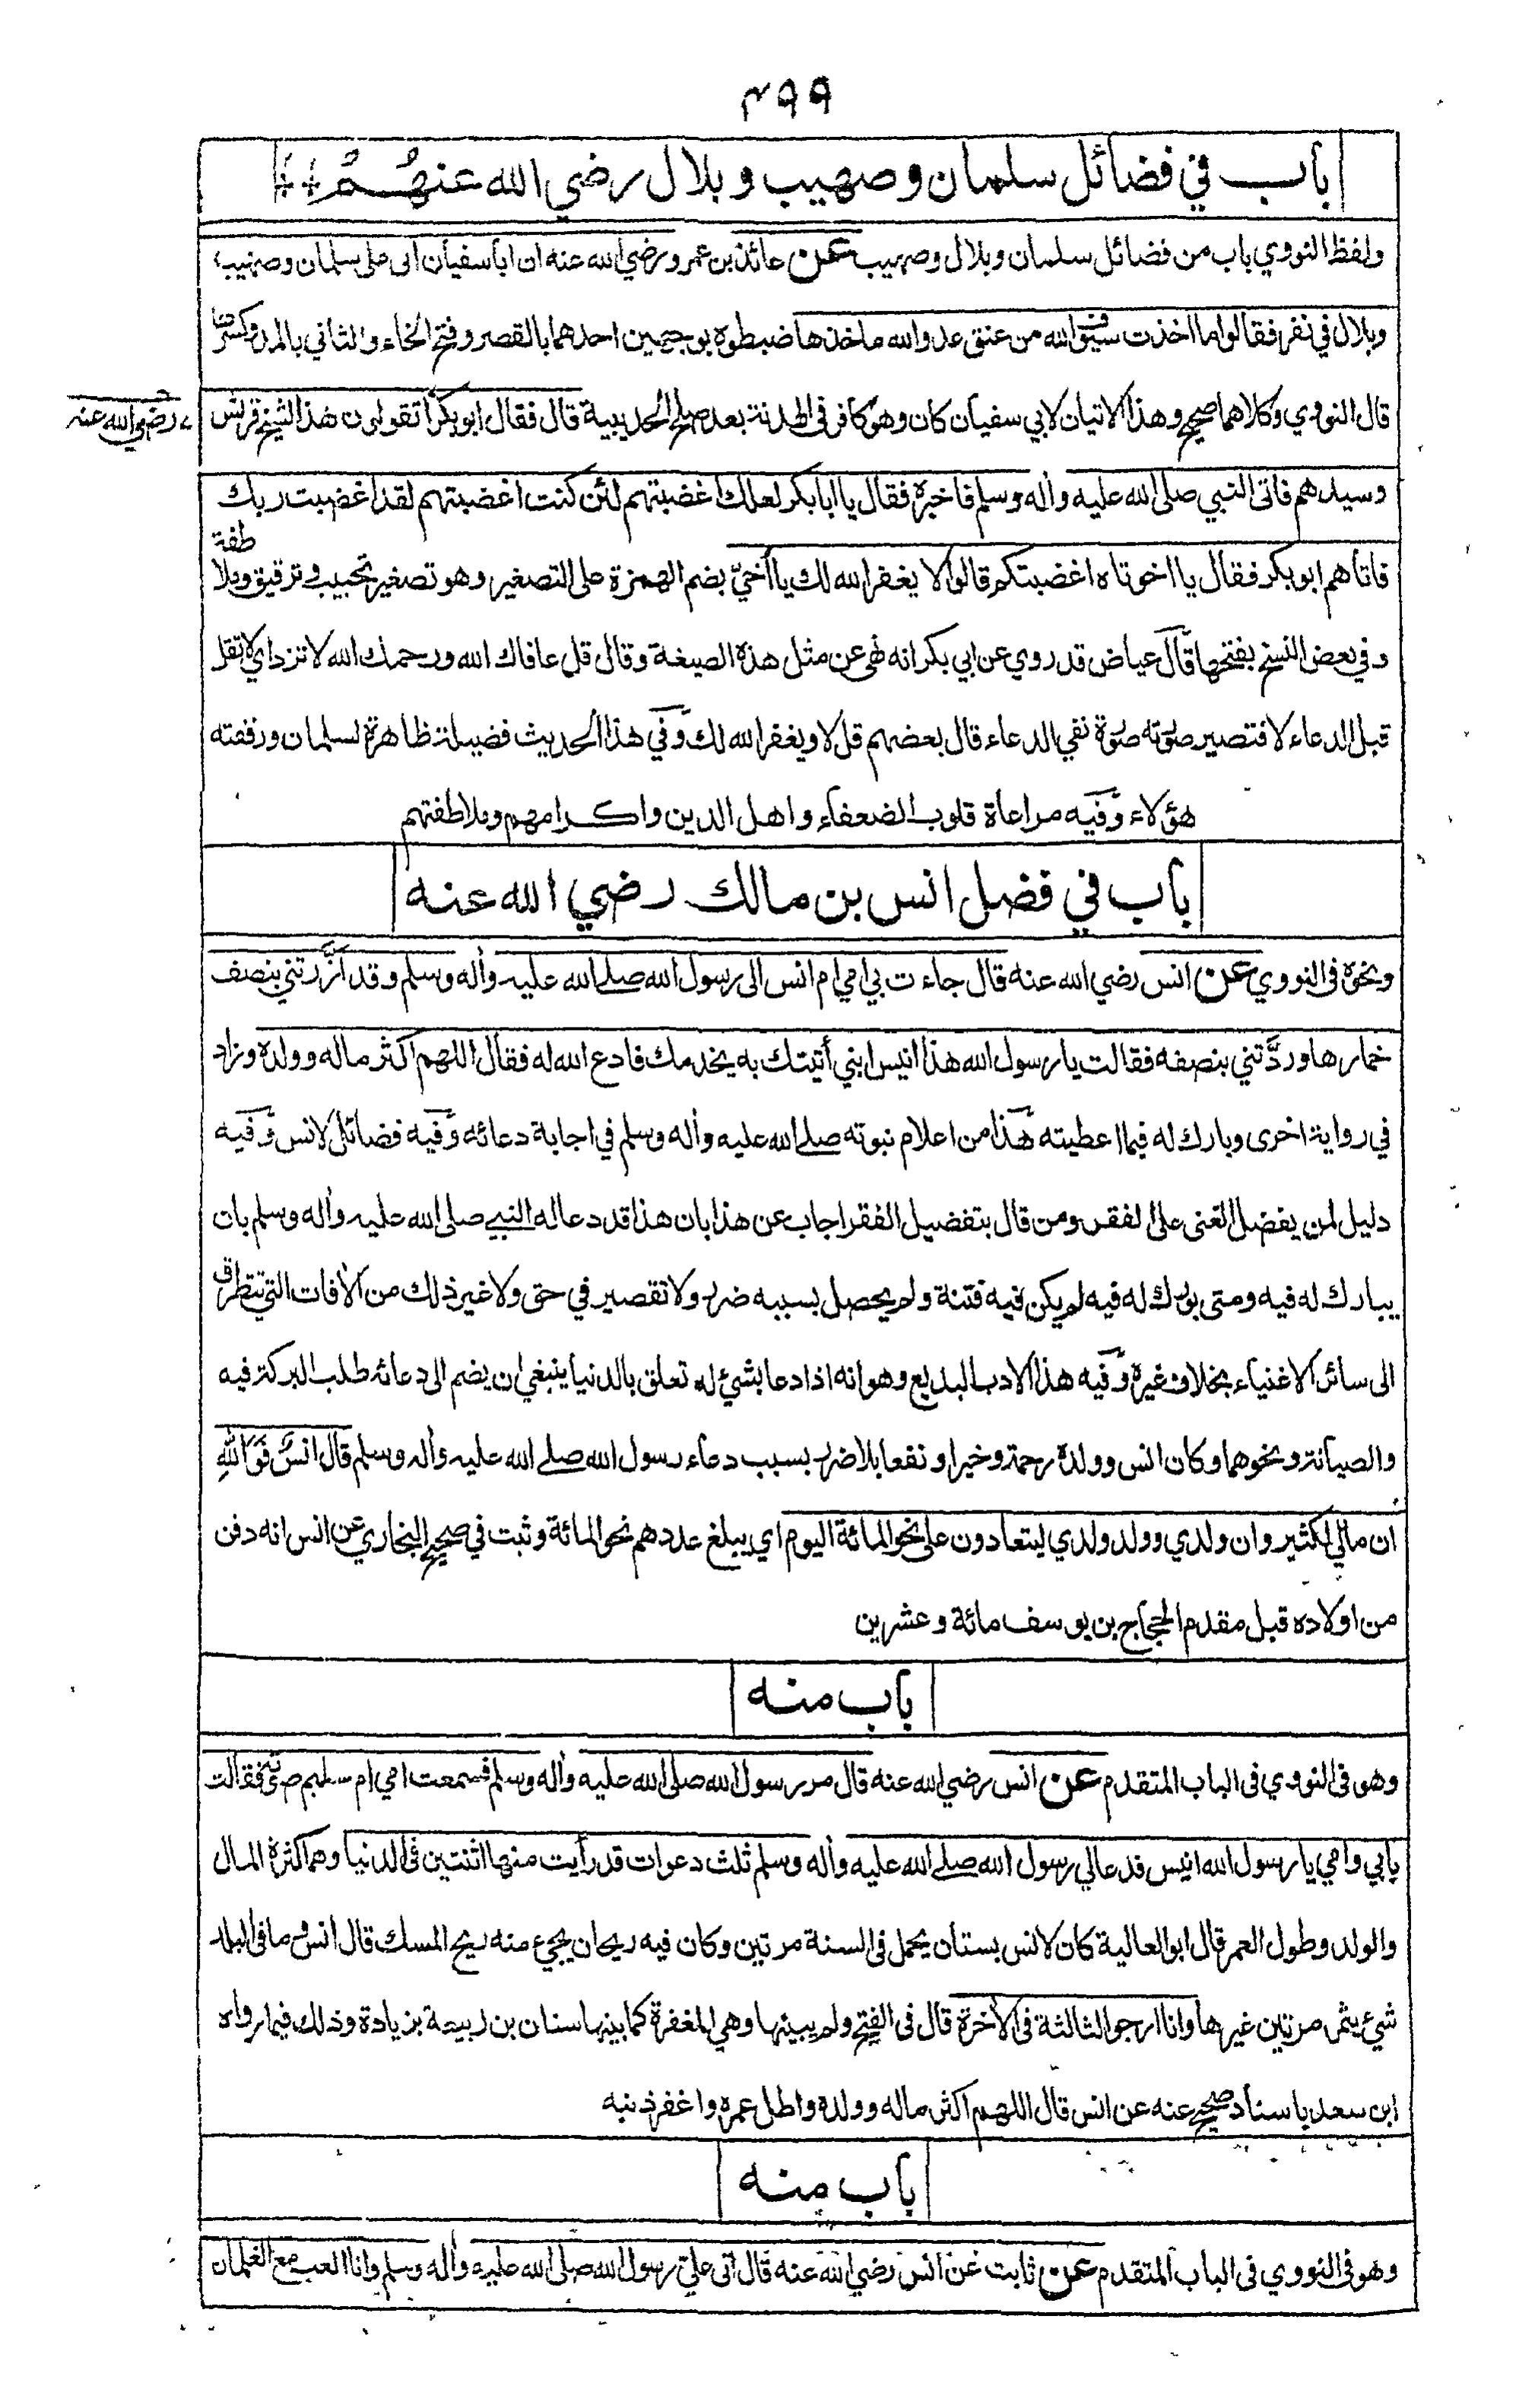 ٤٩٩
باب في فضائل سلمان وصهيب وبلال رضي الله عنهُمْ
ولفظ النووي باب من فضائل سلمان وبلال وصهيب عن عائذ بن عمرو رضي الله عنه ان ابا سفيان اتى على سلمان وصهيب
وبلال في نفر فقالوا ما اخذت سيوف الله من عنق عدو الله ماخذها ضبطوه بوجهين احدهما بالقصر وفتح الخاء والثاني بالمد وكسرها
قال النووي وكلاهما صحيح وهذا الاتيان لابي سفيان كان وهو كافر في الهدنة بعد صلح الحديبية قال فقال ابو بكر أتقولون هذا لشيخ قريش
رضي الله عنه
وسيدهم فاتى النبي صلى الله عليه وأله وسلم فاخبره فقال يا ابا بكر لعلك اغضبتهم لئن كنت اغضبتهم لقد اغضبت ربك
فاتاهم ابو بكر فقال يا اخوتاه اغضبتكم قالوا لا يغفر الله لك يا أخيّ بضم الهمزة على التصغير وهو تصغير تحبيب وترقيق وملاطفة
وفي بعض النسخ بفتحها قال عياض قد روي عن ابي بكر انه نهى عن مثل هذه الصيغة وقال قل عافاك الله ورحمك الله لا تزد اي لا تقل
قبل الدعاء لا فتصير صورته صورة نفي الدعاء قال بعضهم قل لا ويغفر الله لك وفي هذا الحديث فضيلة ظاهرة لسلمان ورفقته
هؤلاء وفيه مراعاة قلوب الضعفاء واهل الدين واكرامهم وملاطفتهم
باب في فضل انس بن مالك رضي الله عنه
ونحوه في النووي عن انس رضي الله عنه قال جاءت بي امي ام انس الى رسول الله صلى الله عليه وأله وسلم وقد ازّرتني بنصف
خمارها وردّتني بنصفه فقالت يا رسول الله هذا انيس ابني أتيتك به يخدمك فادع الله له فقال اللهم اكثر ماله وولده وزاد
في رواية اخرى وبارك له فيما اعطيته هذا من اعلام نبوته صلى الله عليه وأله وسلم في اجابة دعائه وفيه فضائل لانس وفيه
دليل لمن يفضل الغنى على الفقر ومن قال بتفضيل الفقر اجاب عن هذا بان هذا قد دعا له النبي صلى الله عليه وأله وسلم بان
يبارك له فيه ومتى بورك له فيه لم يكن فيه فتنة ولم يحصل بسببه ضرر ولا تقصير في حق ولا غير ذلك من الأفات التي تتطرق
الى سائر الاغنياء بخلاف غيره وفيه هذا الادب البديع وهو انه اذا دعا بشيء له تعلق بالدنيا ينبغي ان يضم الى دعائه طلب البركة فيه
والصيانة ونحوهما وكان انس وولده رحمة وخيرا ونفعا بلا ضرر بسبب دعاء رسول الله صلى الله عليه وأله وسلم قال انسٌ فَوَاللهِ
ان مالي لكثير وان ولدي وولد ولدي ليتعادون على نحو المائة اليوم اي يبلغ عددهم نحو المائة وثبت في صحيح البخاري عن انس انه دفن
من اولاده قبل مقدم الحجاج بن يوسف مائة وعشرين
باب منه
وهو في النووي في الباب المتقدم عن انس رضي الله عنه قال مر رسول الله صلى الله عليه وأله وسلم فسمعت امي ام سليم صوته فقالت
بابي وامي يا رسول الله انيس فدعا لي رسول الله صلى الله عليه وأله وسلم ثلث دعوات قد رأيت منها اثنتين في الدنيا وهما كثرة المال
والولد وطول العمر قال ابو العالية كان لانس بستان يحمل في السنة مرتين وكان فيه ريحان يجيء منه ريح المسك قال انس وما في البلد
شيء يثمر مرتين غيرها وانا ارجو الثالثة في الأخرة قال في الفتح ولم يبينها وهي المغفرة كما بينها سنان بن ربيعة بزيادة وذلك فيما رواه
ابن سعد باسناد صحيح عنه عن انس قال اللهم اكثر ماله وولده واطل عمره واغفر ذنبه
باب منه
وهو في النووي في الباب المتقدم عن ثابت عن انس رضي الله عنه قال اتى علي رسول الله صلى الله عليه وأله وسلم وانا العب مع الغلمان